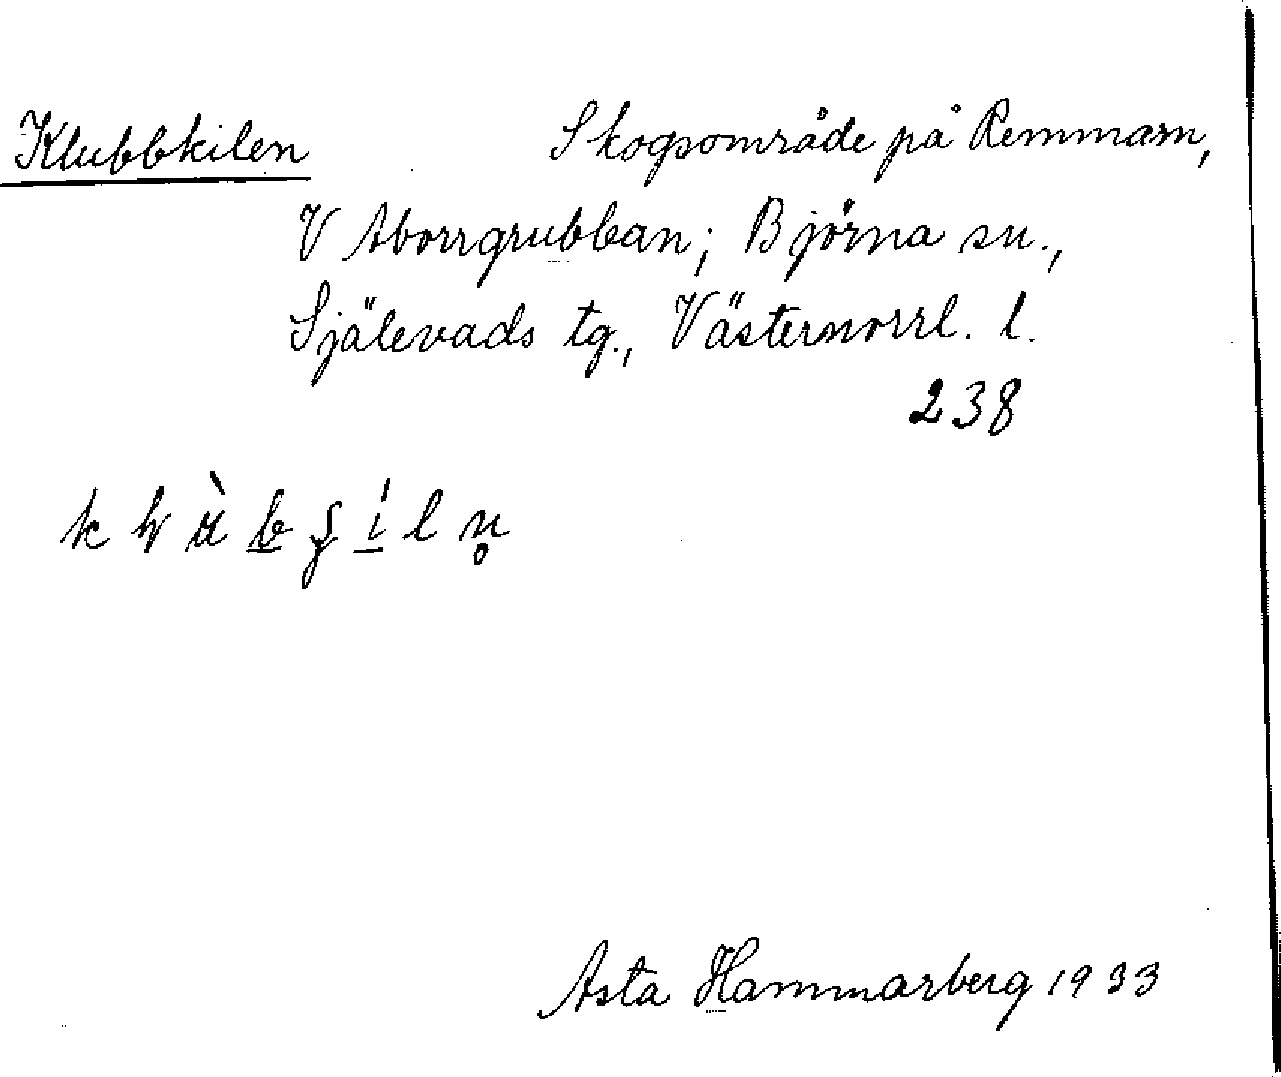 Klubbkilen Skogsområde på Remmarn,
V Aborrgrubban; Björna sn.,
Själevads tg., Västernorrl. l.
238
Asta Hammarberg 1933